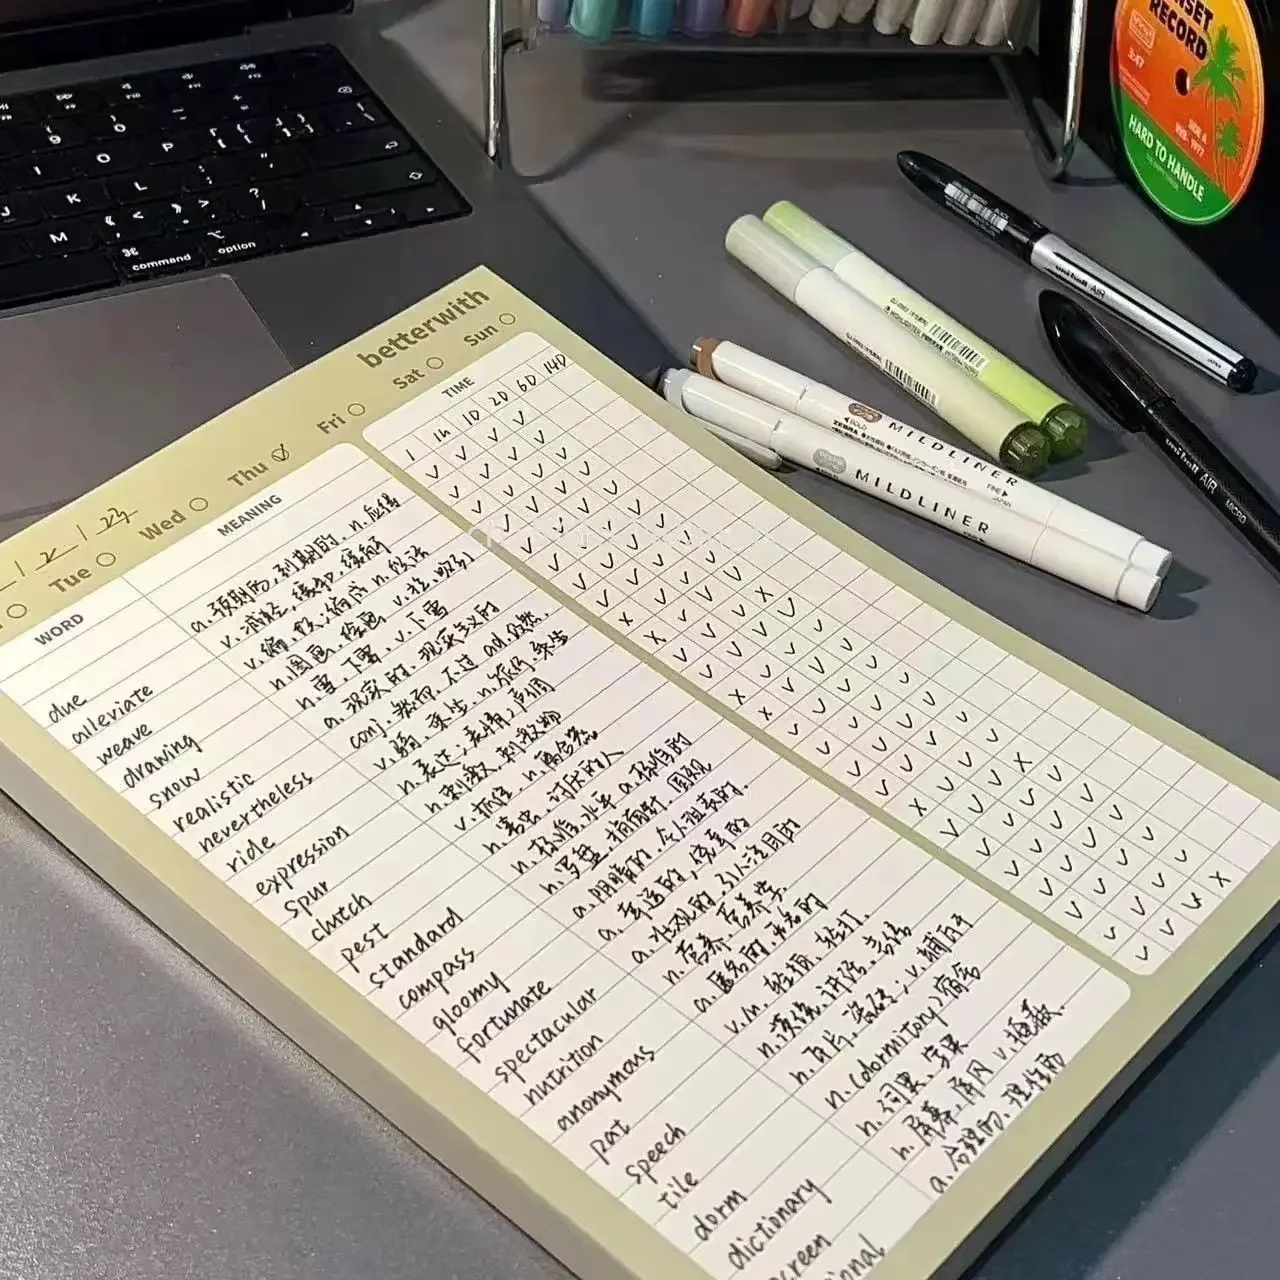 betterwith
Tue Wed Thu Fri Sat Sun
WORD MEANING TIME
1 1h 1D 2D 6D 14D
due a. 预期的, 到期的, n. 应得
alleviate v. 减轻, 缓和, 缓解
weave v. 编, 织; 编成 n. 织法
drawing n. 图画, 绘画 v. 拉, 吸引
snow n. 雪, 下雪 v. 下雪
realistic a. 现实的, 现实主义的
nevertheless conj. 然而, 不过 ad. 仍然,
ride v. 骑, 乘坐 n. 旅行, 乘坐
expression n. 表达; 表情; 声调
spur n. 刺激, 刺激物
clutch v. 抓住, n. 离合器
pest n. 害虫, 讨厌的人
standard n. 标准, 水平 a. 标准的
compass n. 罗盘, 指南针, 圆规
gloomy a. 阴暗的, 令人沮丧的.
fortunate a. 幸运的, 侥幸的
spectacular a. 壮观的, 引人注目的
nutrition n. 营养, 营养学
anonymous a. 匿名的,
pat v. n. 轻拍, 轻打.
speech n. 演说, 讲话, 言语
tile n. 瓦片, 瓷砖; v. 铺瓦于
dorm n. (dormitory) 宿舍
dictionary n. 词典, 字典
creen n. 屏幕, 屏风 v. 掩蔽.
ional a. 合理的, 理性的
command
option
MILDLINER
MILDLINER
ZEBRA
BOLD
FINE
JAPAN
HIGHLIGHTER
uni-ball AIR
uni-ball AIR
MICRO
JAPAN
RECORD
3:47
SIDE A
HARD TO HANDLE